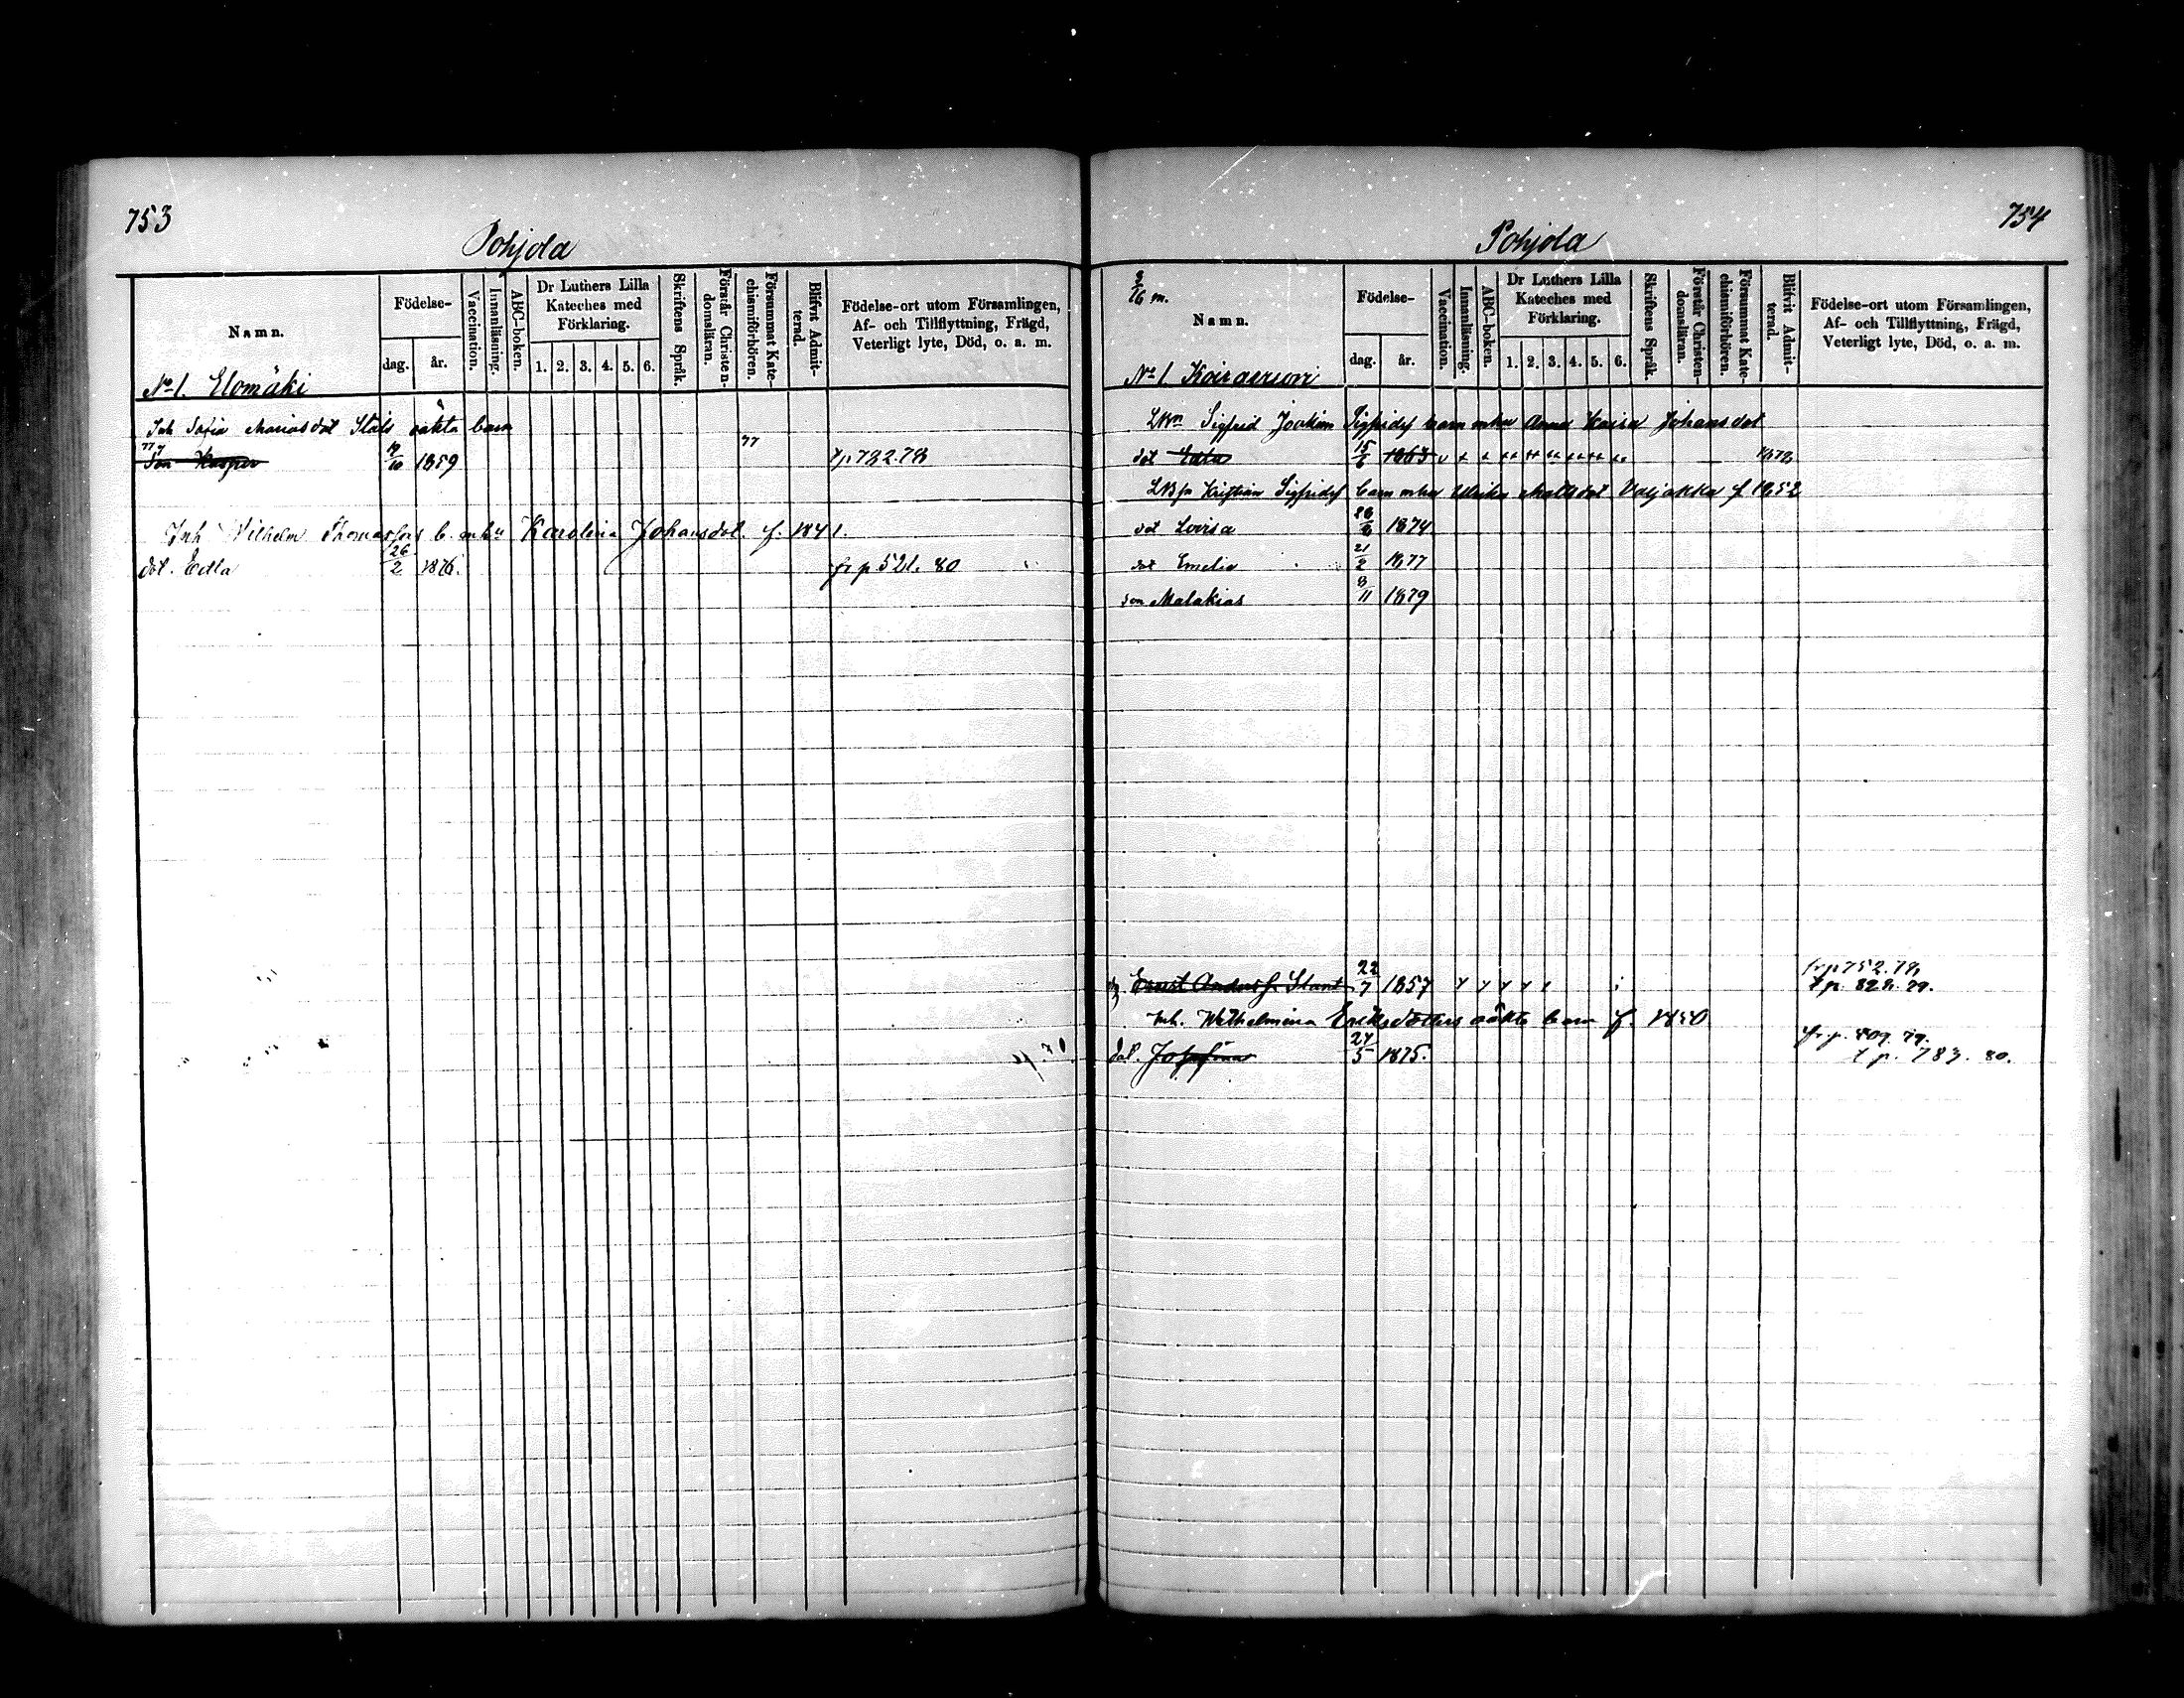 753
Pohjola
Namn.
Födelse-
dag.
år.
Vaccination.
Innanläsning.
ABC-boken.
Dr Luthers Lilla
Kateches med
Förklaring.
1. 2. 3. 4. 5. 6.
Skriftens Språk.
Förstår Christen-
domsläran.
Försummat Kate-
chismiförhören.
Blifvit Admit-
terad.
Födelse-ort utom Församlingen,
Af- och Tillflyttning, Frägd,
Veterligt lyte, Död, o. a. m.
No 1. Elomäki
Inh Sofia Mariasdot oäkta barn
Son Kasper 1859 77
Inh Wilhelm Thomasson b. mhu Karolina Johansdot. f. 1841.
dot. Edla 26/2 1876. fr p 521. 80
754
Pohjola
Namn.
Födelse-
dag.
år.
Vaccination.
Innanläsning.
ABC-boken.
Dr Luthers Lilla
Kateches med
Förklaring.
1. 2. 3. 4. 5. 6.
Skriftens Språk.
Förstår Christen-
domsläran.
Försummat Kate-
chismiförhören.
Blifvit Admit-
terad.
Födelse-ort utom Församlingen,
Af- och Tillflyttning, Frägd,
Veterligt lyte, Död, o. a. m.
No 1.
Sigfrid Joakim Sigfridsf barn mhu Anna Kaisa Johansdot
dot Edla 15/6 1863
Kristian Sigfridsf barn mhu Ulrika Mattsdot f 1852
dot Lovisa 1874
dot Emelia 21/2 1877
son Malakias 1879
Ernst Anders f. 22/7 1857 fr p 752. 78
t p. 79.
Inh. Wilhelmina Eriksdotters oäkta barn f. 1850
dot. Josefina 5 1875. fr p. 809. 79.
t p. 783. 80.